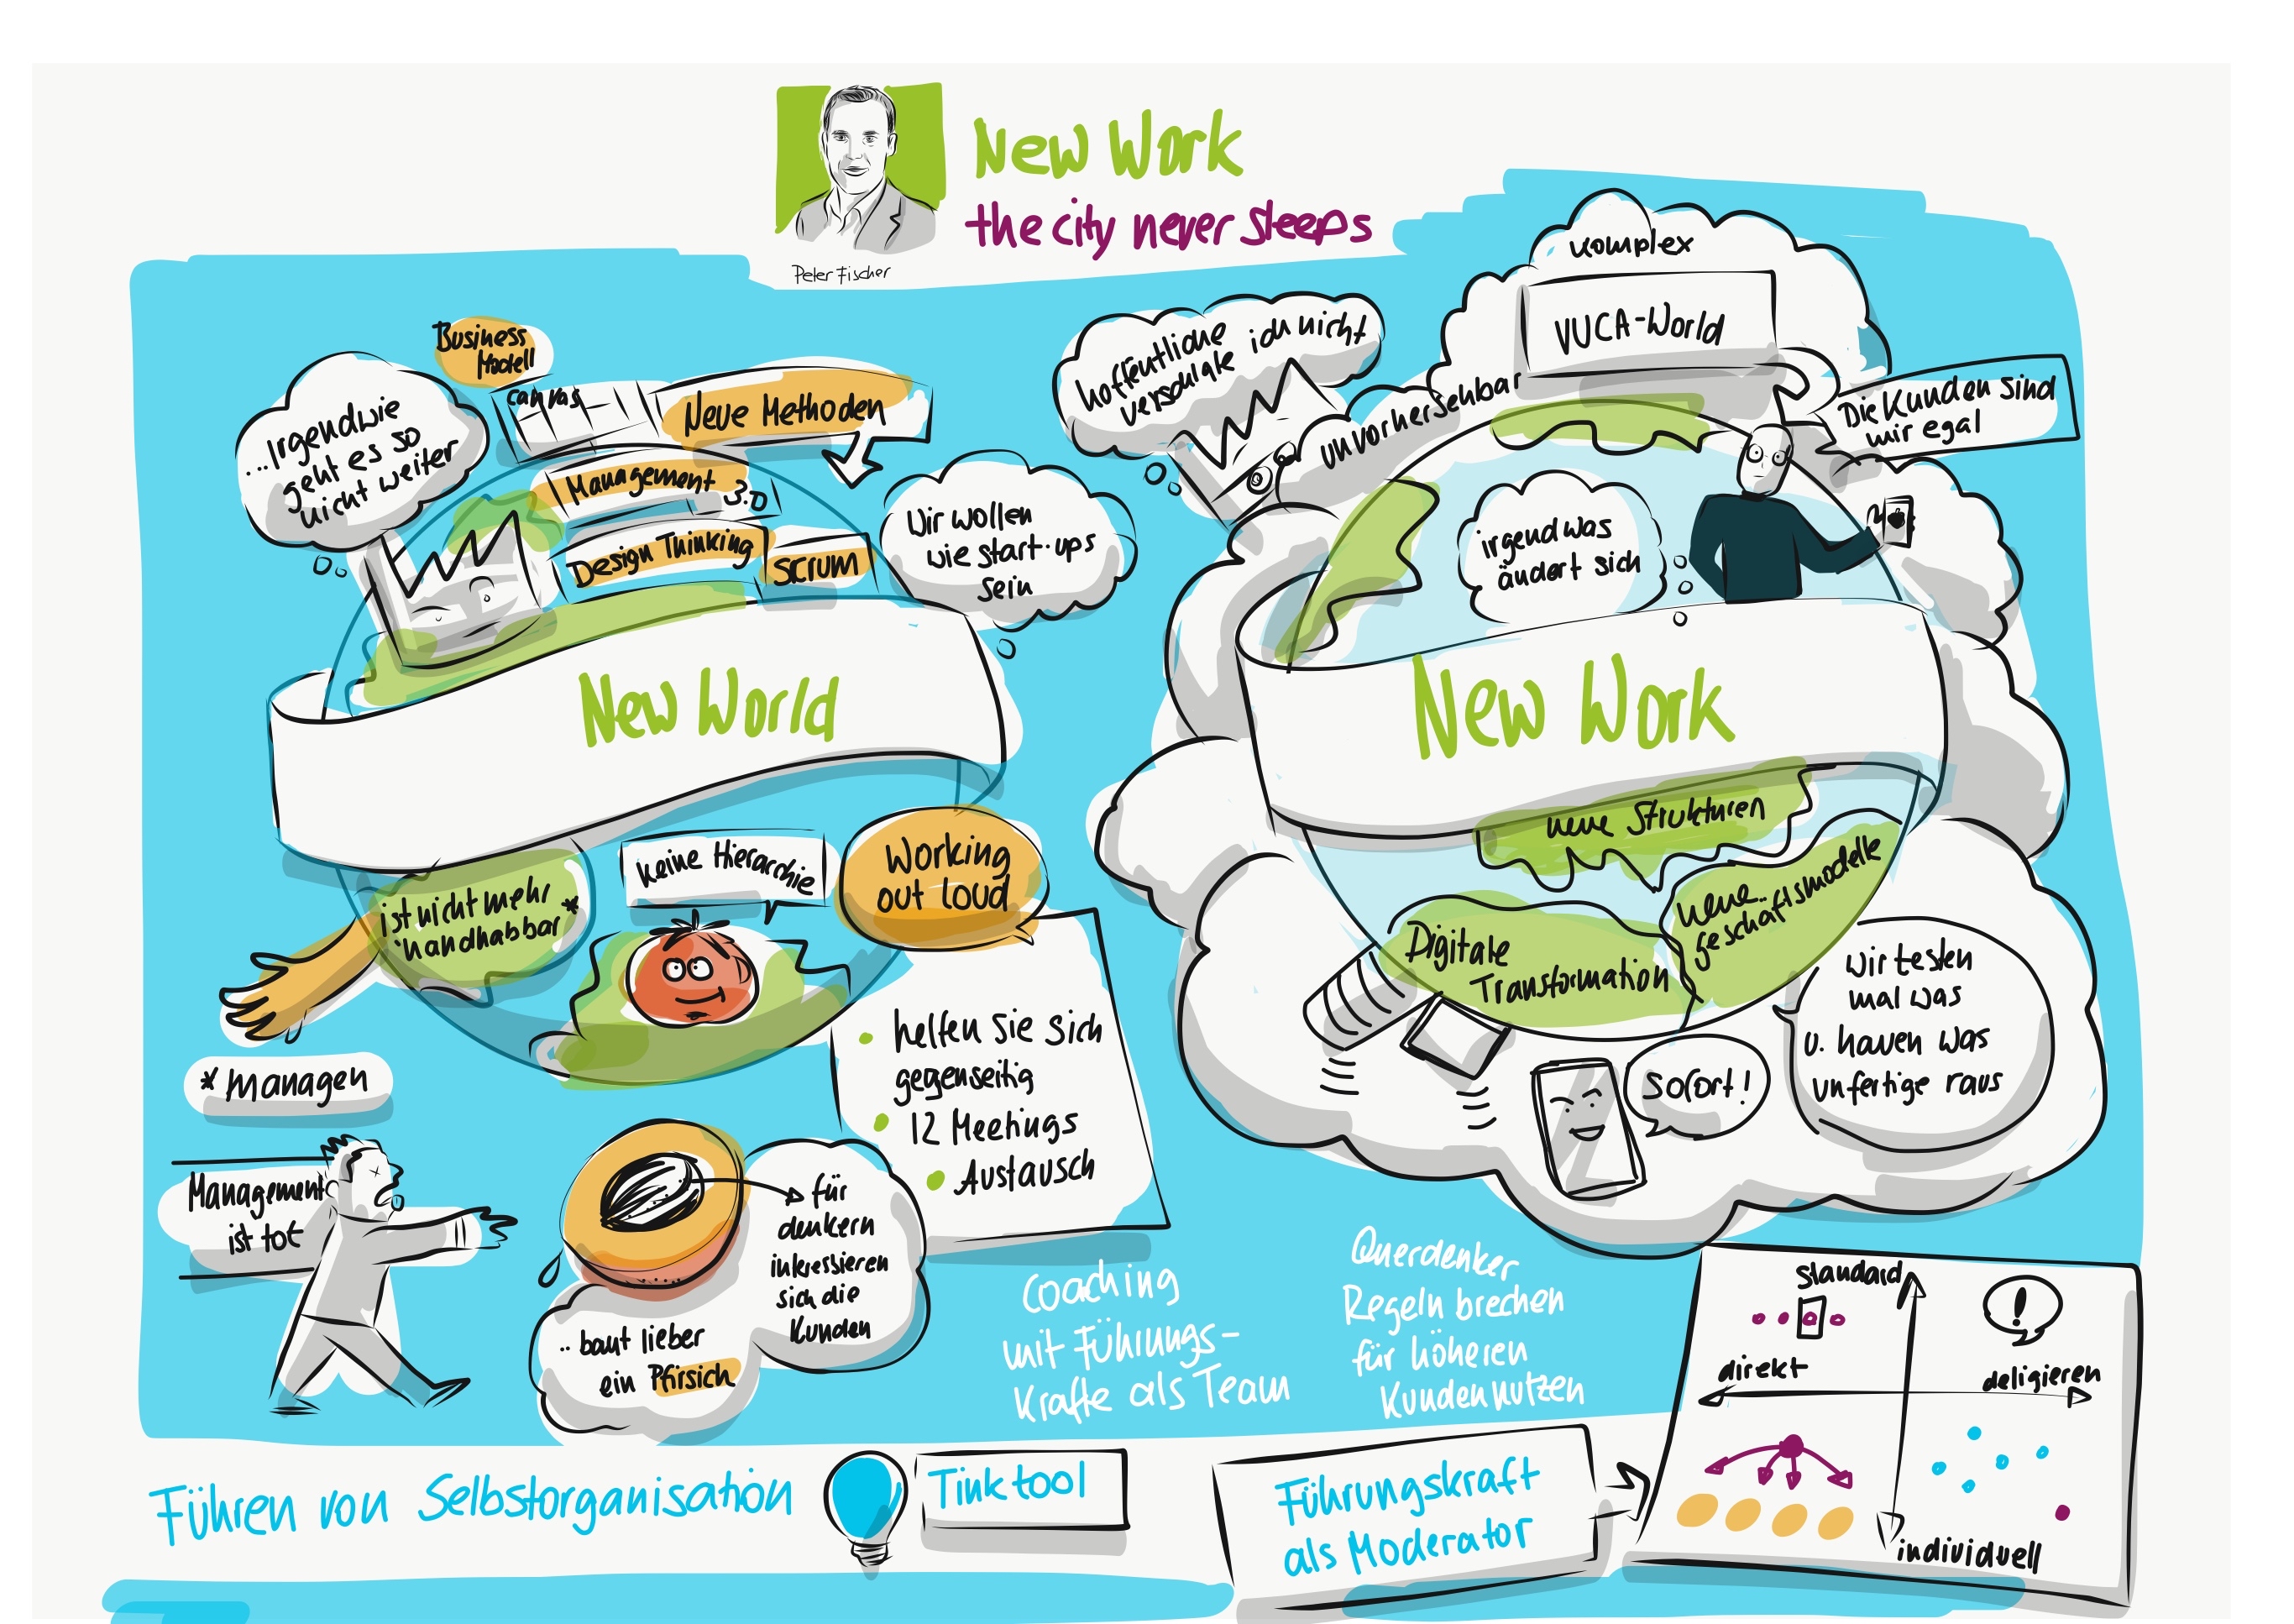 New Work
the city never sleeps
Peter Fischer
Business
Modell
canvas
Neue Methoden
...Irgendwie
geht es so
nicht weiter
Management 3.0
Design Thinking
SCRUM
Wir wollen
wie start-ups
sein
New World
ist nicht mehr *
handhabbar
keine Hierarchie
Working
out loud
helfen Sie sich
gegenseitig
12 Meetings
Austausch
* managen
Management
ist tot
für
denkern
interessieren
sich die
Kunden
.. baut lieber
ein Pfirsich
hoffentliche ich nicht
verschlafe
komplex
VUCA-World
unvorhersehbar
Die Kunden sind
mir egal
irgendwas
ändert sich
New Work
neue Strukturen
neue..
geschäftsmodelle
Digitale
Transformation
wir testen
mal was
u. hauen was
unfertige raus
sofort!
Coaching
mit Führungs-
Kräfte als Team
Querdenker
Regeln brechen
für höheren
Kundennutzen
standard
!
direkt
deligieren
individuell
Führen von Selbstorganisation
Tinktool
Führungskraft
als Moderator